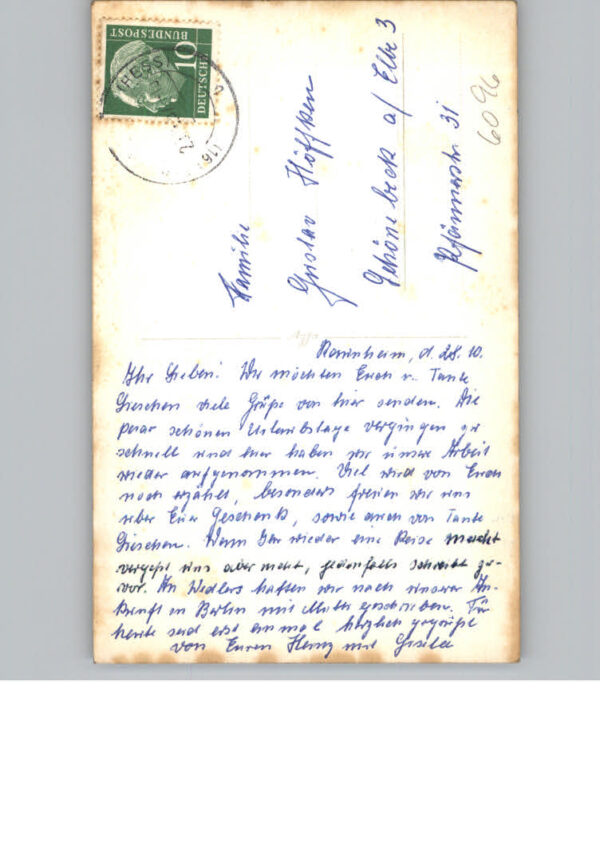 DEUTSCHE
BUNDESPOST
10
(16
6096
Familie
Gustav Höffken
Schönebeck a/ Elbe 3
Pfännerstr. 31
d. 28. 10.
Ihr Lieben! Wir möchten Euch u. Tante
Lieschen viele Grüße von hier senden. Die
paar schönen Urlaubstage vergingen zu
schnell und nun haben wir unsere Arbeit
wieder aufgenommen. Viel wird von Euch
noch erzählt, besonders freuen wir uns
über Euer Geschenk, sowie auch von Tante
Lieschen. Wenn Ihr wieder eine Reise macht
vergeßt uns aber nicht, jedenfalls schreibt zu-
vor. An Wedlers hatten wir nach unserer An-
kunft in Berlin mit Mutti geschrieben. Für
heute seid erst einmal herzlich gegrüßt
von Euren Heinz und Gisela